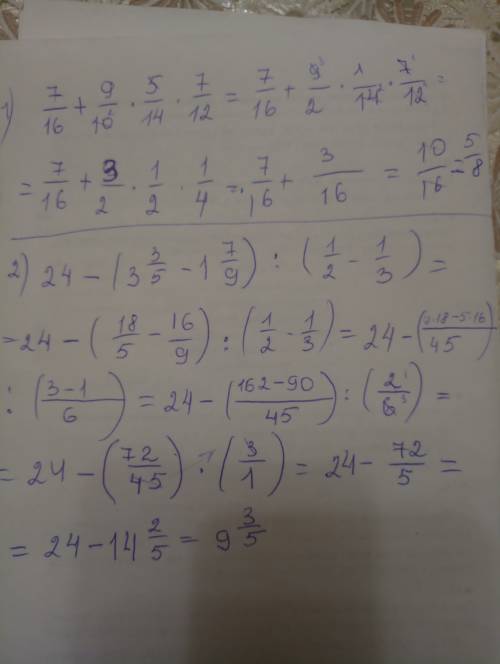 1) 7/16 + 9/10² · 5/14 · 7/12 = 7/16 + 9³/2 · 1/14² · 7¹/12 =
= 7/16 + 3/2 · 1/2 · 1/4 = 7/16 + 3/16 = 10/16 = 5/8
2) 24 - (3 3/5 - 1 7/9) : (1/2 - 1/3) =
= 24 - (18/5 - 16/9) : (1/2 - 1/3) = 24 - (9·18-5·16)/45
: (3-1/6) = 24 - (162-90/45) : (2¹/6³) =
= 24 - (72/45) · (3/1) = 24 - 72/5 =
= 24 - 14 2/5 = 9 3/5